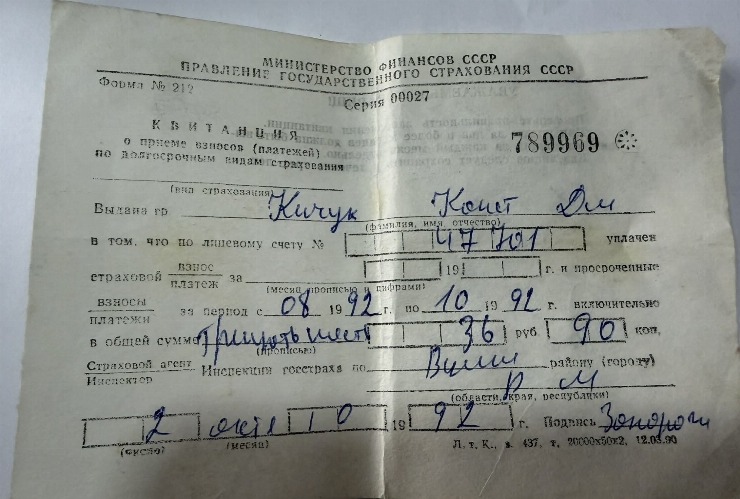 МИНИСТЕРСТВО ФИНАНСОВ СССР
ПРАВЛЕНИЕ ГОСУДАРСТВЕННОГО СТРАХОВАНИЯ СССР
Форма № 212
Серия 00027
КВИТАНЦИЯ
о приеме взносов (платежей)
по долгосрочным видам страхования
789969
(вид страхования)
Выдана гр Кичук Конст Дм
(фамилия, имя, отчество)
в том, что по лицевому счету № 47701 уплачен
страховой взнос платеж за 19 г. и просроченные
(месяц прописью и цифрами)
взносы платежи за период с 08 1992 г. по 10 1992 г. включительно
в общей сумме Тридцать шесть 36 руб. 90 коп,
(прописью)
Страховой агент Инспектор Инспекции госстраха по районy (городу)
Р М
(области, края, республики)
2 окт 10 1992 г. Подпись
(число) (месяц)
Л. т. К., з. 437, т, 20000х50х2, 12.03.90